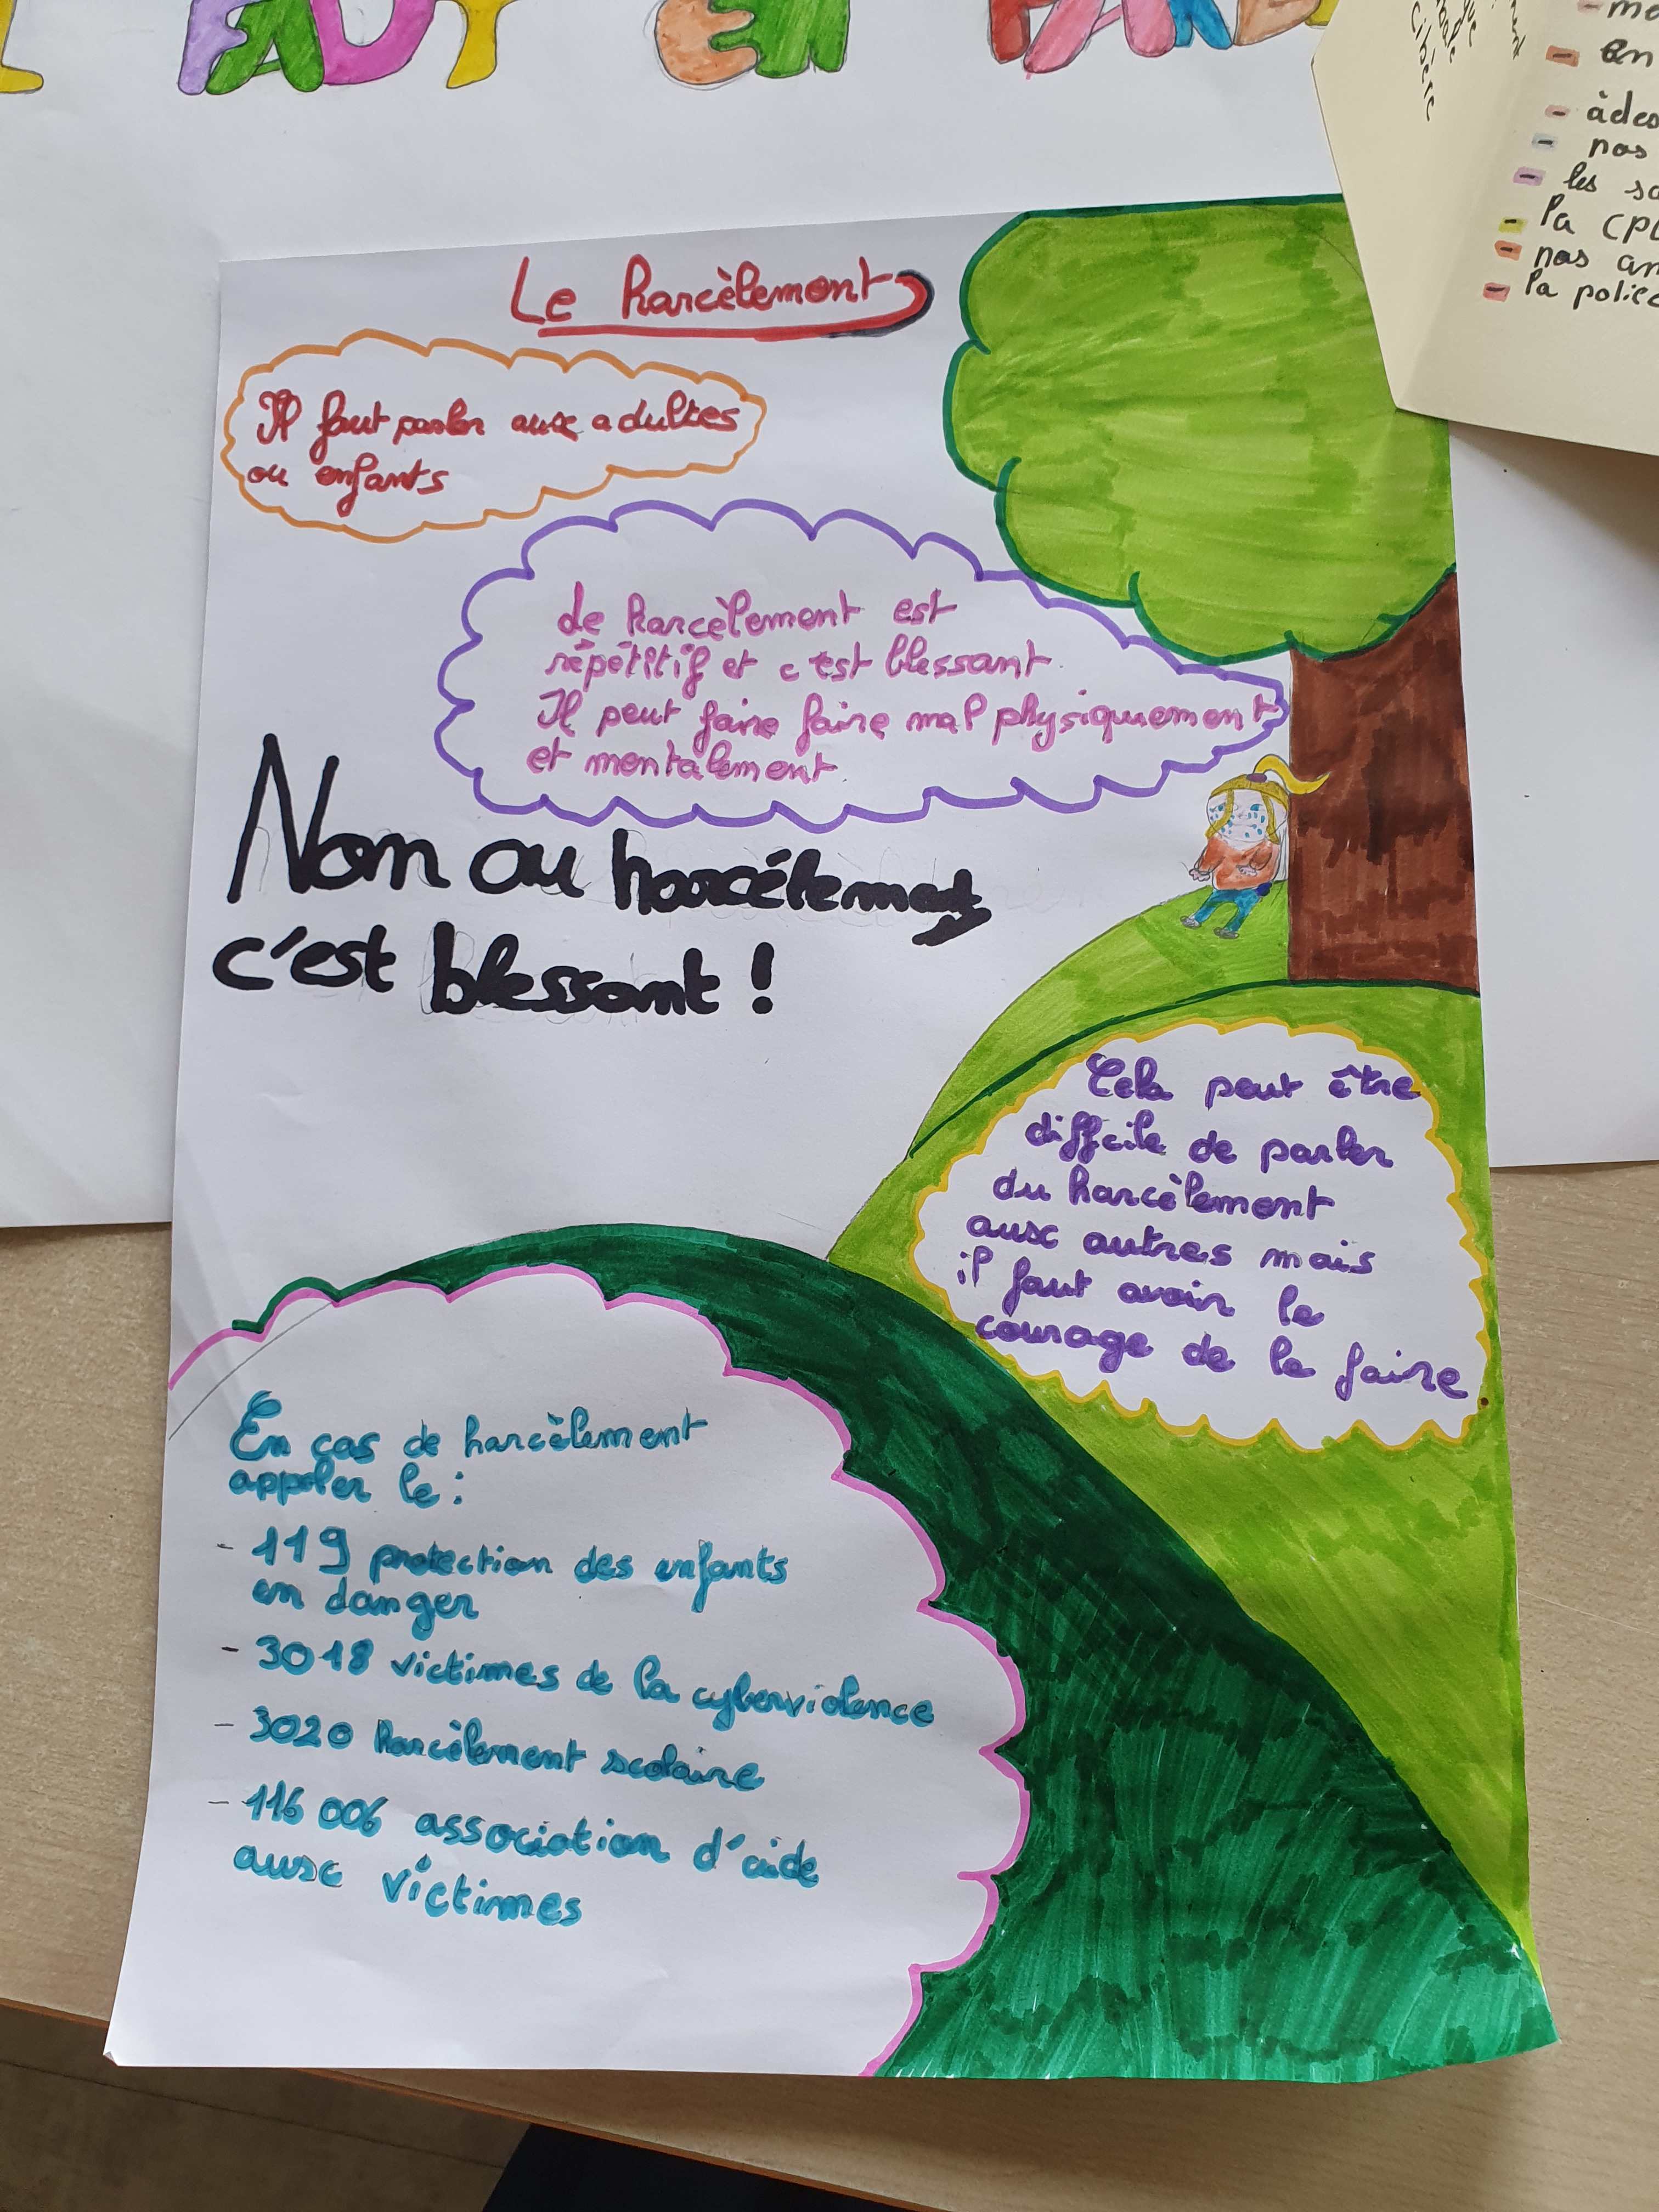 FAUT EN PARL
Le harcèlement
Il faut parler aux adultes
ou enfants
de harcèlement est
répétitif et c'est blessant.
Il peut faire faire mal physiquement
et mentalement.
Nom au harcélement
c'est blessant !
Cela peut être
diffcile de parler
du harcèlement
aux autres mais
il faut avoir le
courage de le faire
En cas de harcèlement
appeler le :
- 119 protection des enfants
en danger
- 3018 victimes de la cyberviolence
- 3020 harcèlement scolaire
- 116 006 association d'aide
aux victimes
cibère
- en
- nos
- les
- la CPE
- nos
- la police